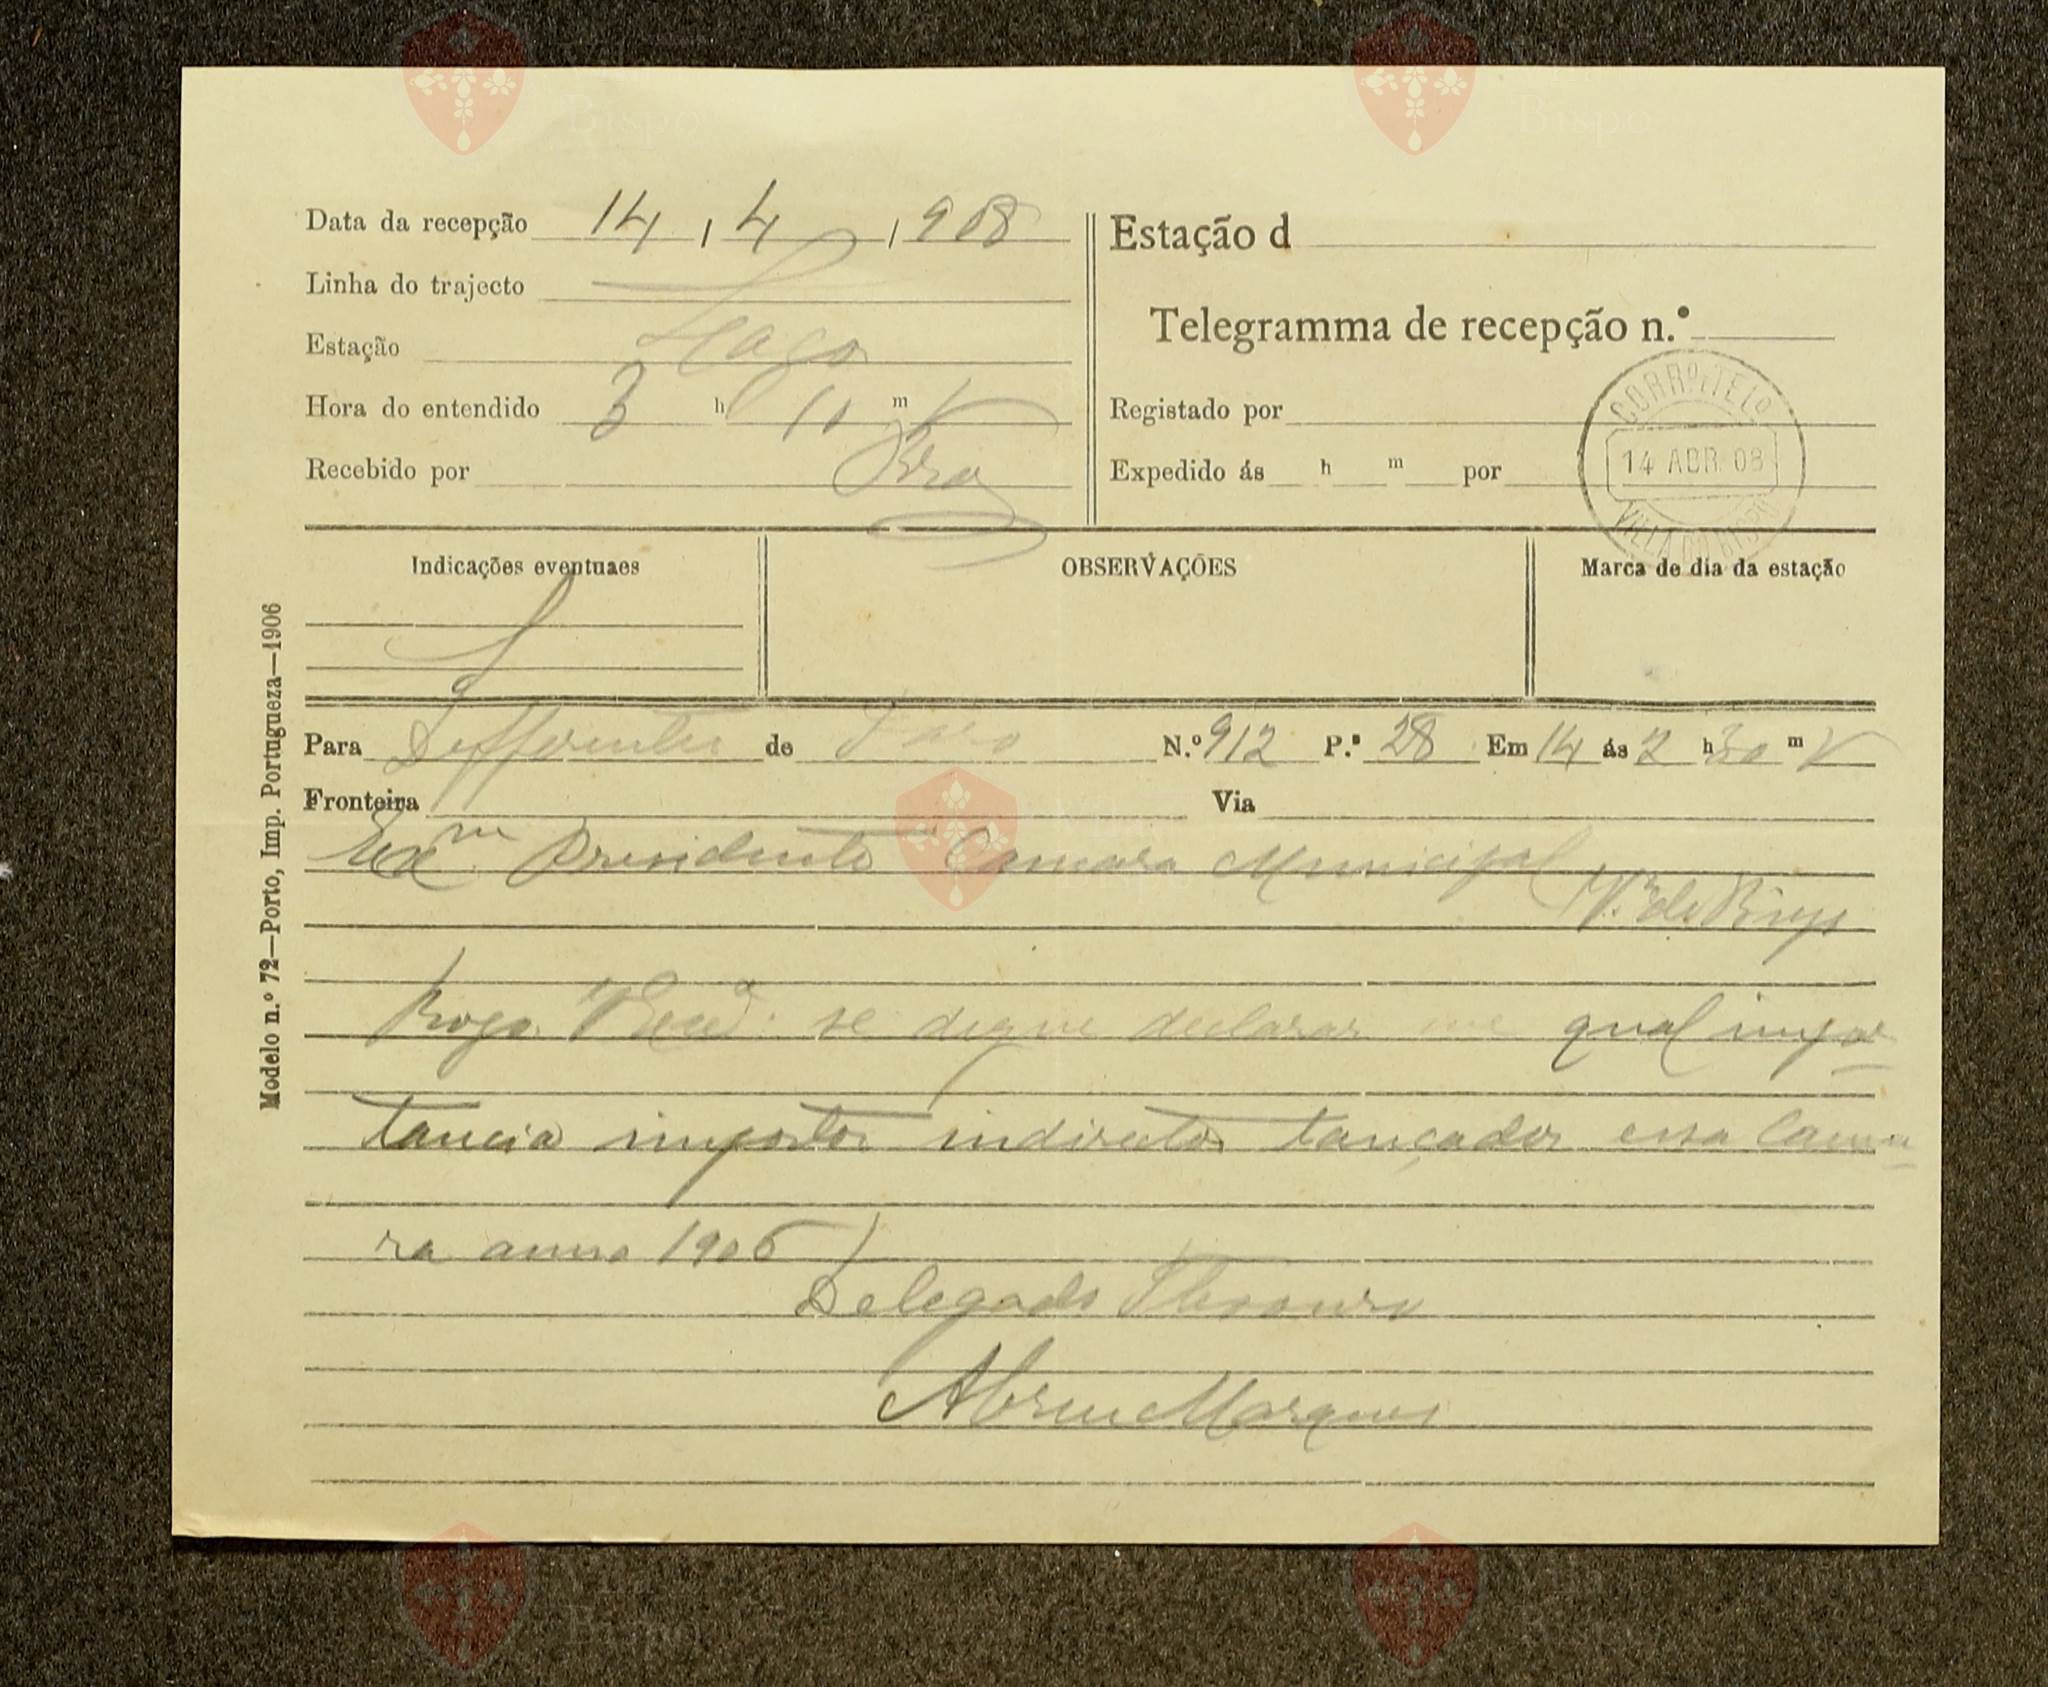 Data da recepção 14, 4, 908
Linha do trajecto
Estação Lagos
Hora do entendido 3 h 10 m
Recebido por
Estação d
Telegramma de recepção n.º
Registado por
Expedido ás h m por
CORRº. E TELº.
14 ABR. 08
VILLA DO BISPO
Indicações eventuaes
OBSERVAÇÕES
Marca de dia da estação
Modelo n.º 72—Porto, Imp. Portugueza—1906
Para Differentes de Faro N.º 912 P.ª 28 Em 14 ás 2 h 30 m
Fronteira Via
Exmº Presidente Camara Municipal
Vª do Bispo
Rogo V Excª. se digne declarar me qual impor
tancia impostos indirectos lançados essa Cama
ra anno 1906
Delegado Thesouro
Abreu Marques
Vila do Bispo